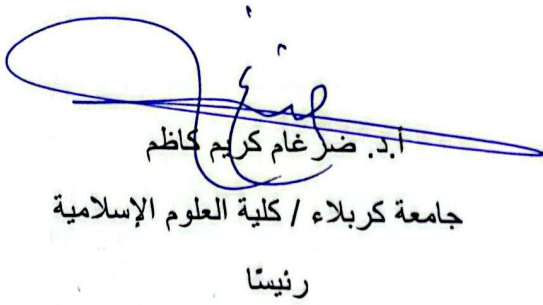 أ.د. ضرغام كريم كاظم
جامعة كربلاء / كلية العلوم الإسلامية
رئيسًا